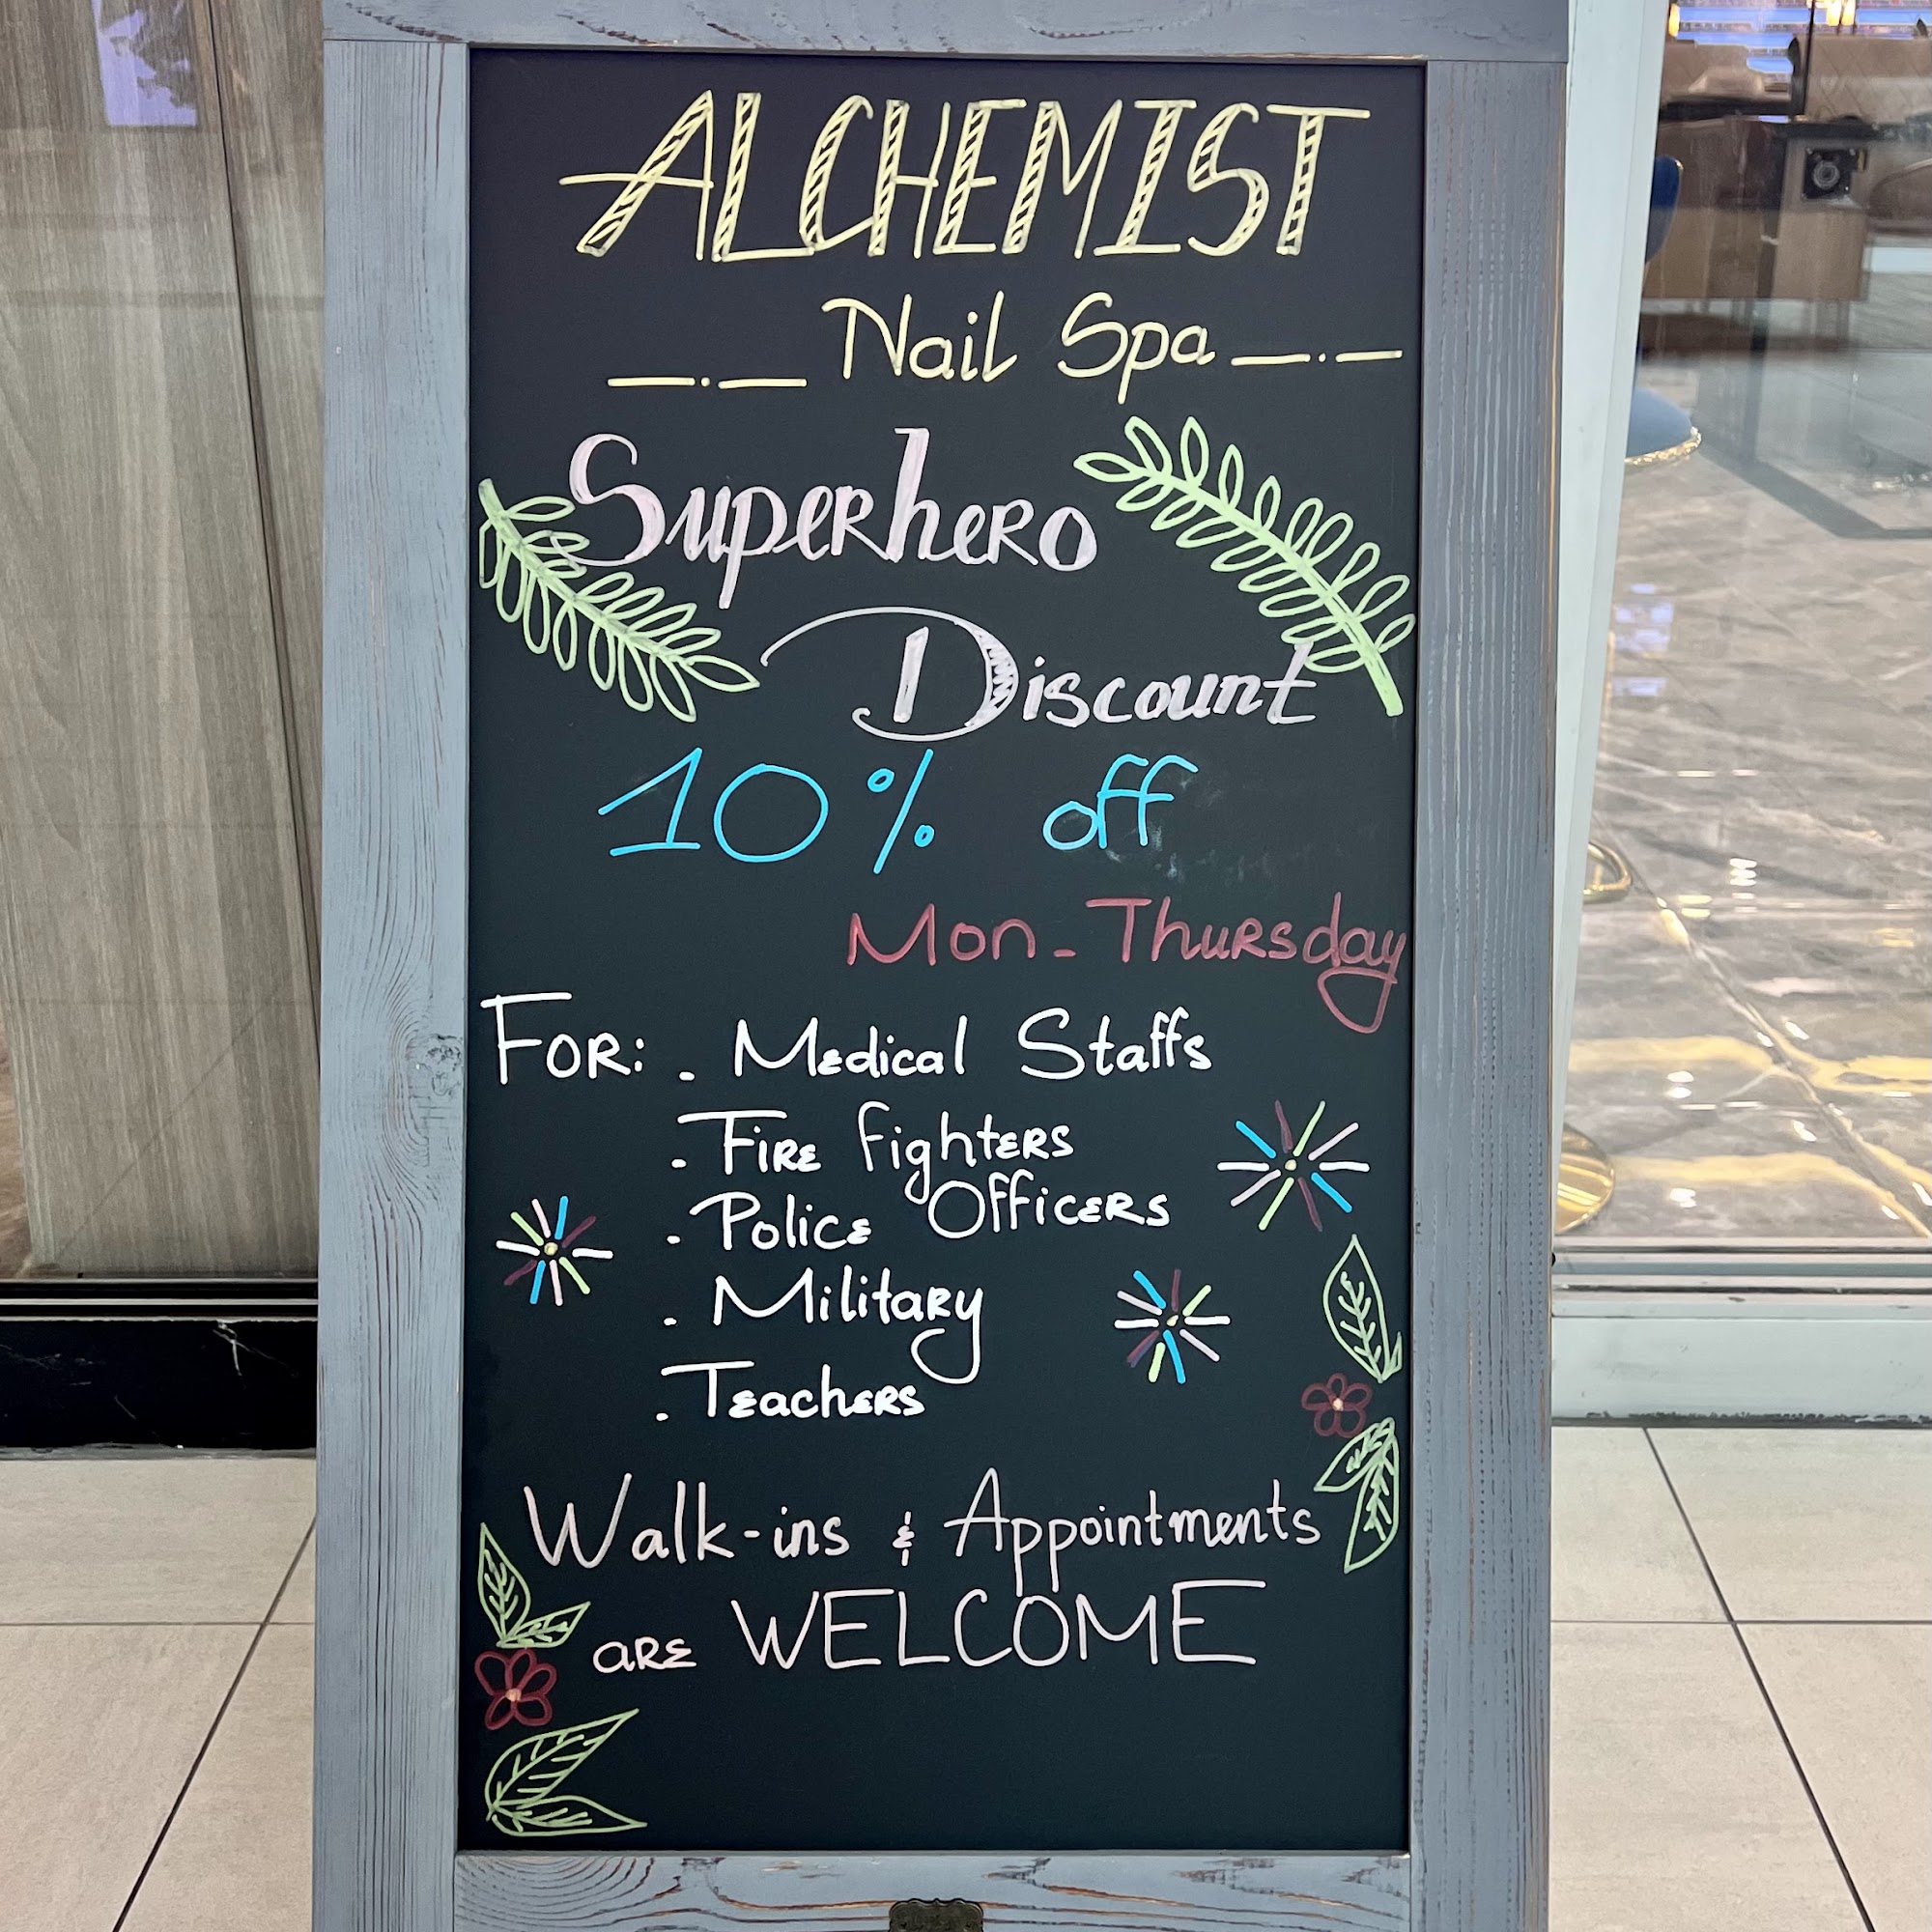 ALCHEMIST
Nail Spa
Superhero
Discount
10% off
Mon - Thursday
FOR: . Medical Staffs
. Fire fighters
. Police Officers
. Military
. Teachers
Walk-ins & Appointments
are WELCOME